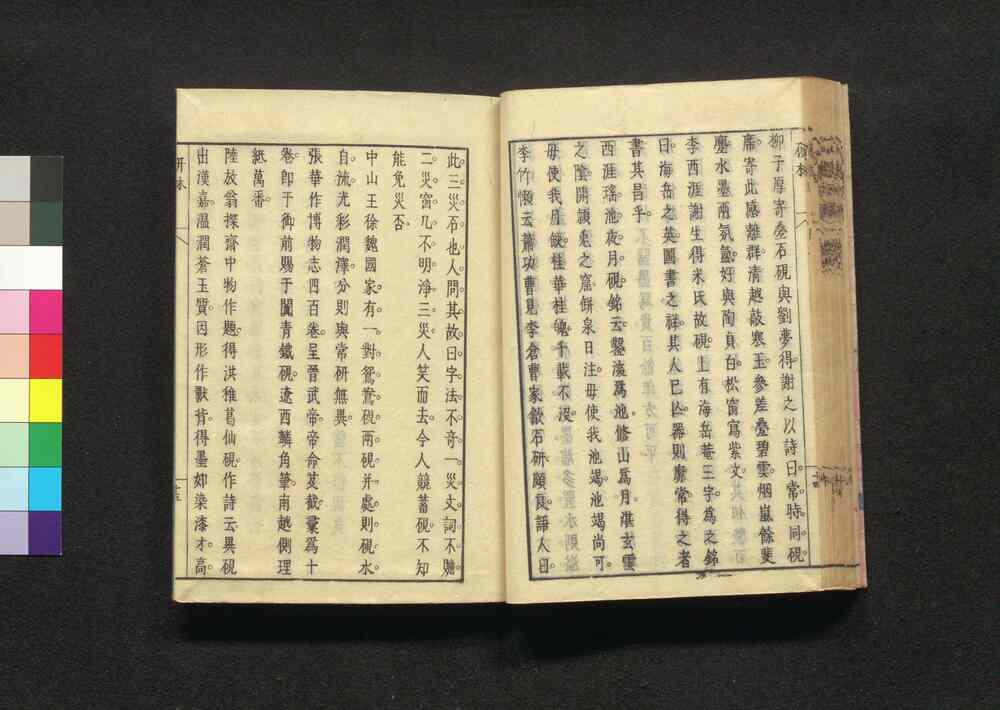 柳子厚寄疊石硯與劉夢得謝之以詩曰常時同硯
席寄此感離群清越敲寒玉參差疊碧雲烟嵐餘斐
亹水墨兩氛氳好與陶貞白松窗寫紫文
李西涯謝生得米氏故硯上有海岳菴三字為之銘
曰海岳之英圖書之祥其人已亾器則靡常得之者
書其昌乎
西涯瑤池夜月硯銘云鑿漢爲池脩山爲月湛玄雲
之陰開頴兎之窟餅泉日注毋使我池竭池竭尚可
毋使我月缺桂華桂魄千載不沒
李竹懶云蕭功曹見李倉曹家歙石研頗良語人曰
此三災石也人問其故曰字法不竒一災文詞不贍
二災窗几不明淨三災人笑而去今人競蓄硯不知
能免災否
中山王徐魏國家有一對鴛鴦硯兩硯并處則硯水
自流光彩潤澤分則與常研無異
張華作博物志四百卷呈晉武帝帝命芟截彙爲十
卷卽于御前賜于闐青鐵硯遼西麟角筆南越側理
紙萬番
陸放翁探齋中物作題得洪稚葛仙硯作詩云異硯
出漢嘉温潤蒼玉質因形作獸背得墨如染漆才高
研林